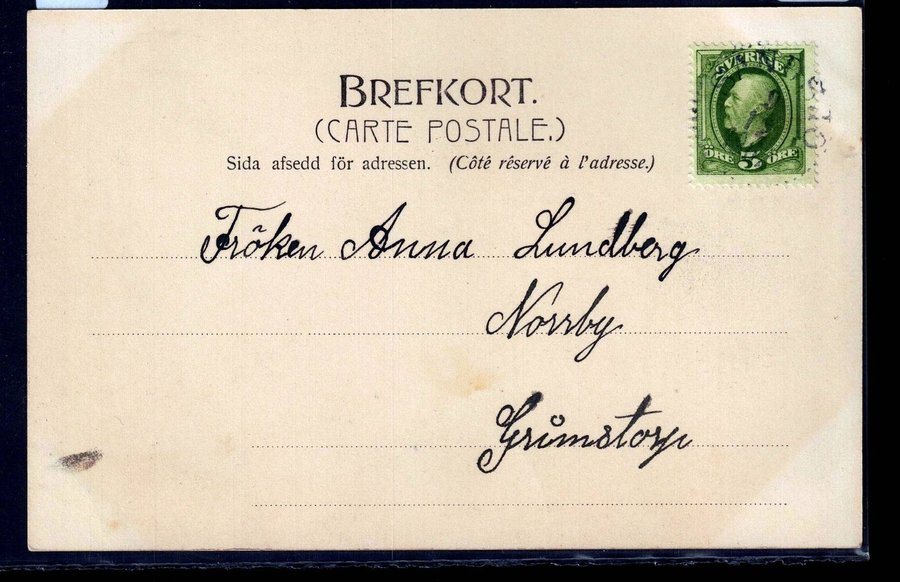 BREFKORT.
(CARTE POSTALE.)
Sida afsedd för adressen. (Côté réservé à l'adresse.)
SVERIGE
ÖRE 5 ÖRE
Fröken Anna Lundberg
Norrby
Grimstorp